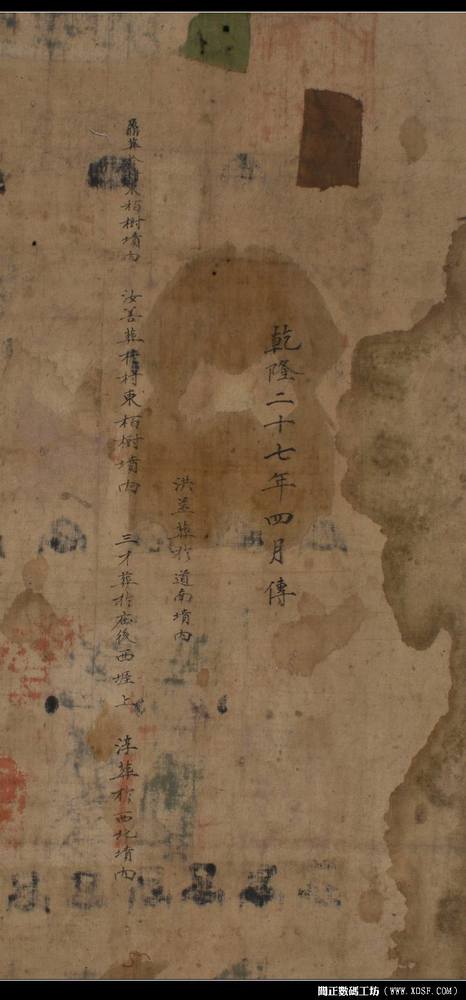 乾隆二十七年四月傳
洪盖葬於道南墳内
葬東栢樹墳内 汝善葬村東栢樹墳内 三才葬於宅後西堐上 淳葬於西北墳内
閒正數碼工坊（www.XDSF.com）